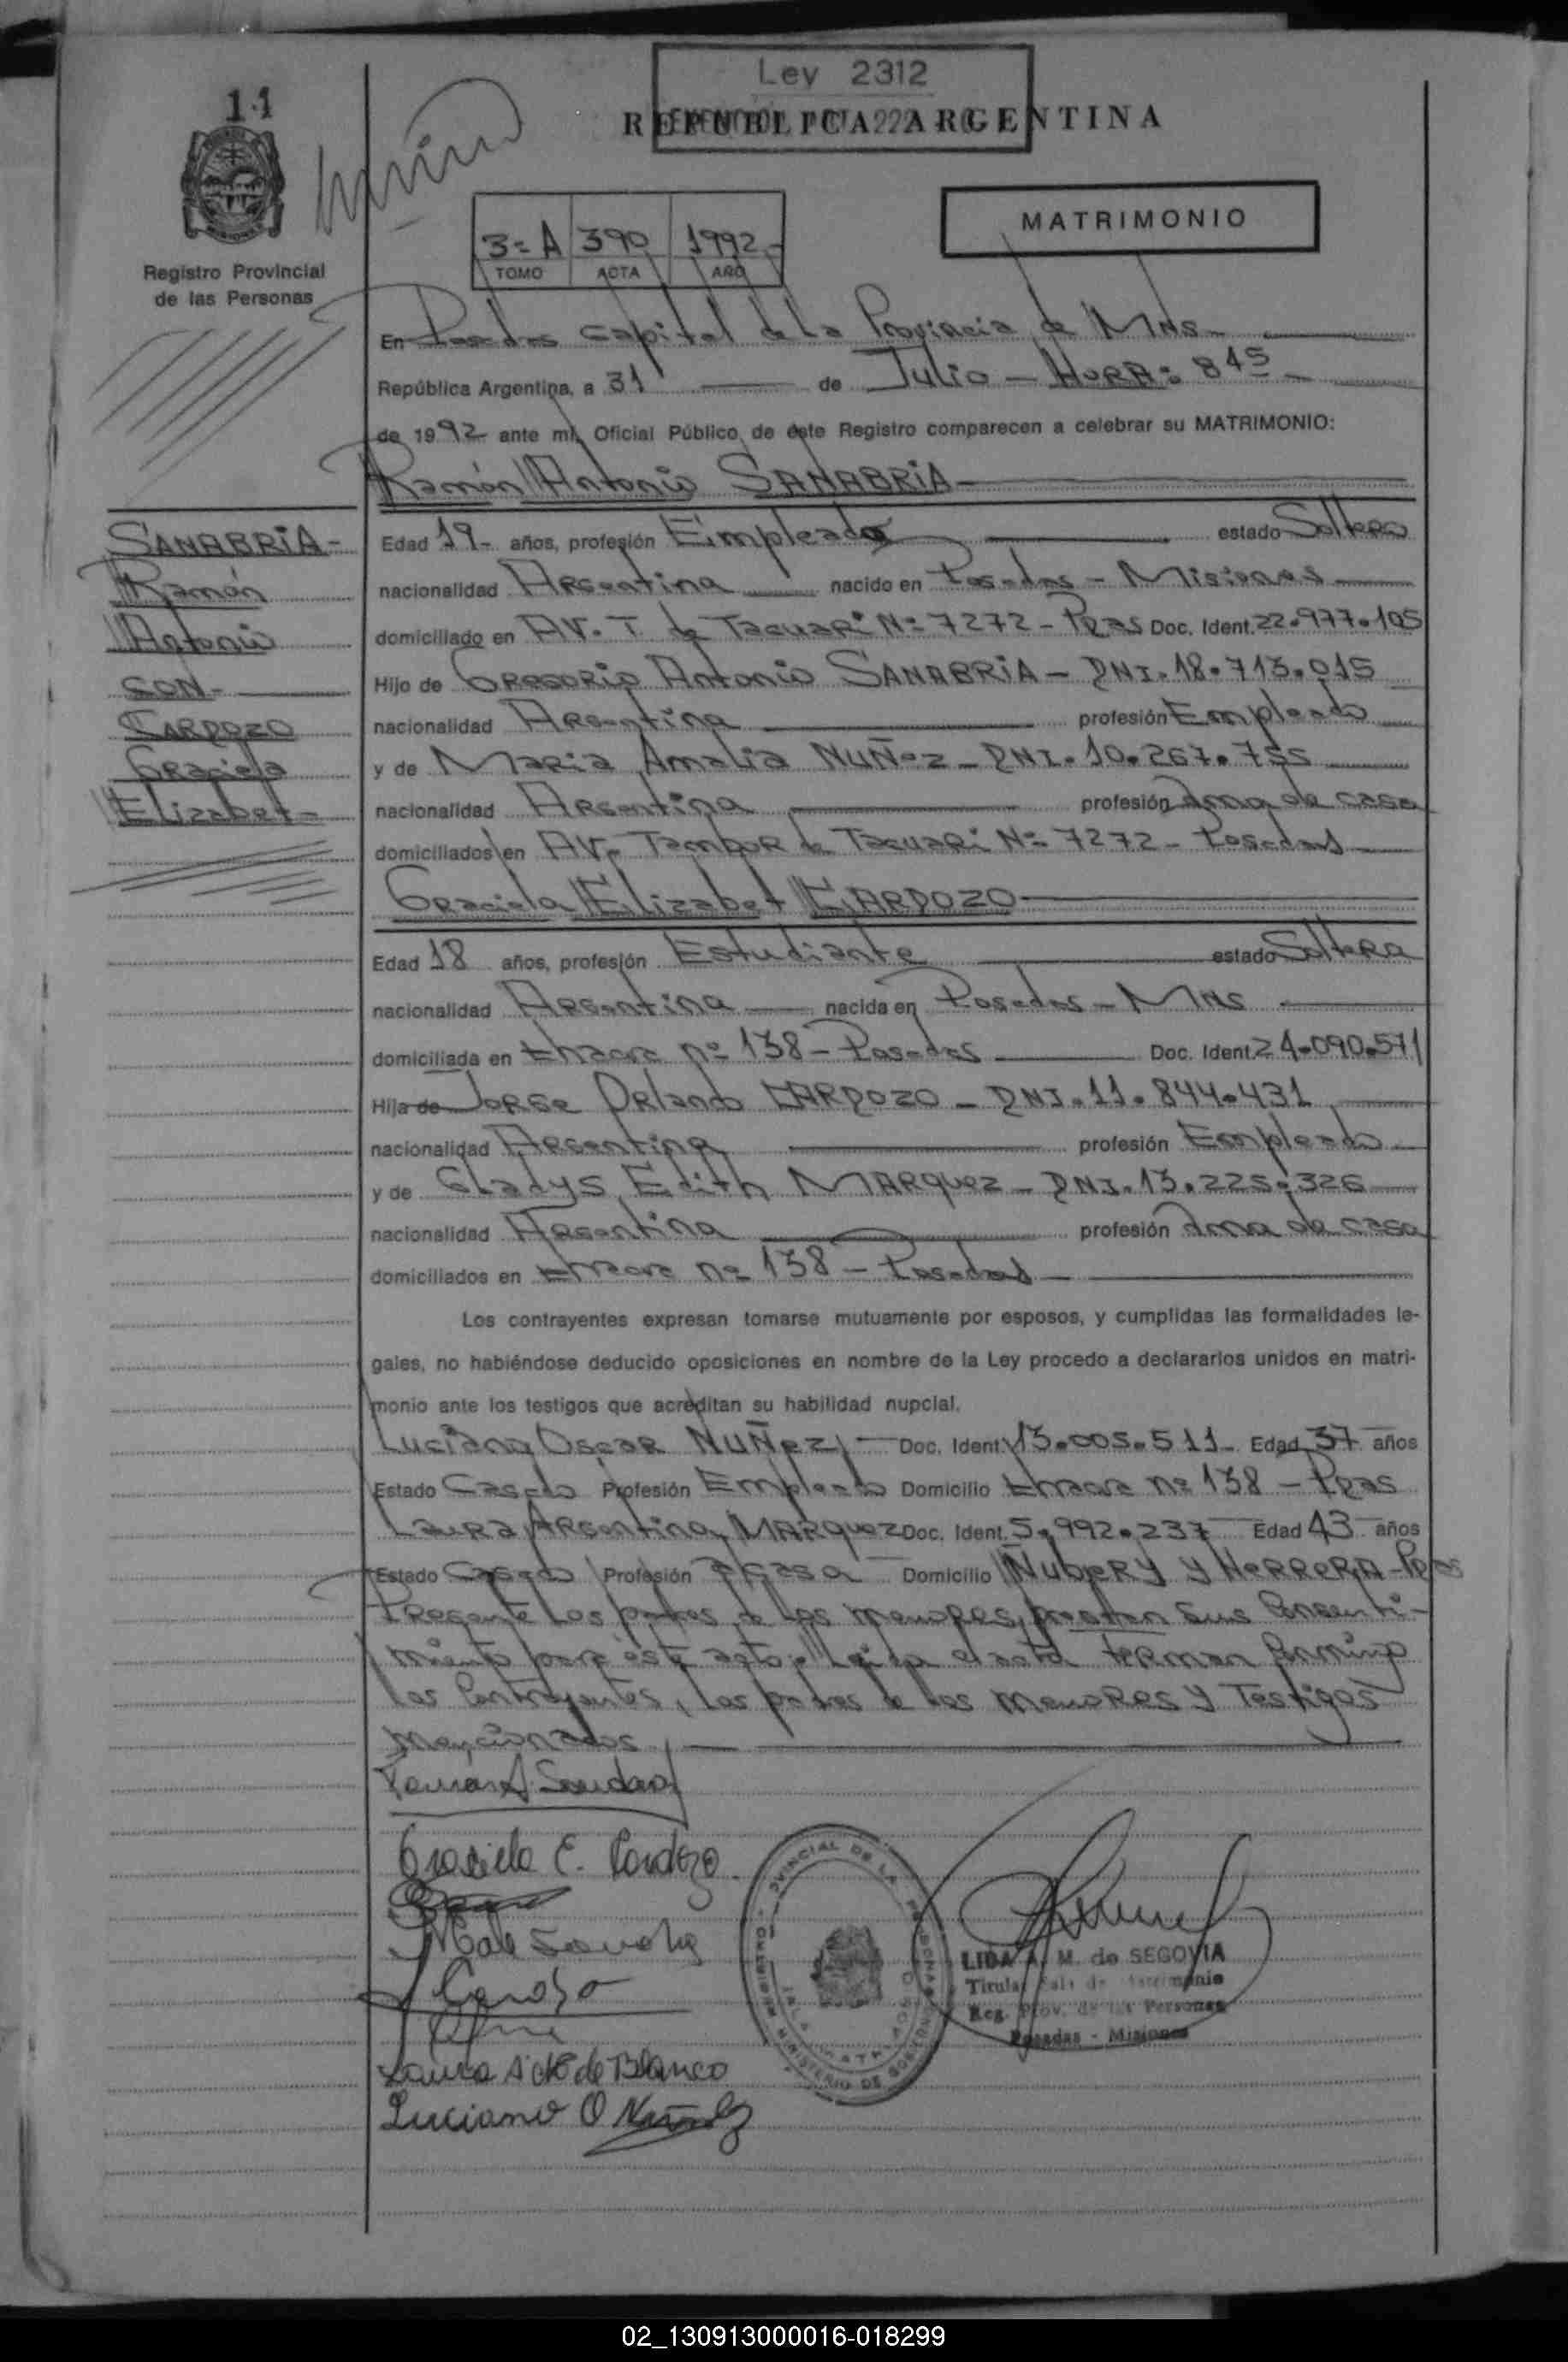 11
Ley 2312
REPUBLICA ARGENTINA
MATRIMONIO
3= A 390 1992-
TOMO ACTA AÑO
Registro Provincial
de las Personas
En Posadas Capital de la Provincia de Mns-
República Argentina, a 31 de Julio - HORA: 8 45 -
de 1992 ante mí, Oficial Público de éste Registro comparecen a celebrar su MATRIMONIO:
Ramón Antonio SANABRIA-
SANABRIA-
Ramón
Antonio
CON-
CARDOZO
Graciela
Elizabet-
Edad 19- años, profesión Empleado estado Soltero
nacionalidad Argentina nacido en Posadas - Misiones
domiciliado en AV. T. de Tacuari Nº 7272 - Pdas Doc. Ident. 22.977.105
Hijo de Gregorio Antonio SANABRIA - DNI. 18.713.015
nacionalidad Argentina profesión Empleado
y de Maria Amalia NUÑez - DNI. 10.267.755
nacionalidad Argentina profesión Ama de casa
domiciliados en AV. Tambor de Tacuari Nº 7272 - Posadas
Graciela Elizabet CARDOZO
Edad 18 años, profesión Estudiante estado Soltera
nacionalidad Argentina nacida en Posadas - Mns
domiciliada en Chacra nº 138 - Posadas Doc. Ident. 24.090.571
Hija de Jorge Orlando CARDOZO - DNI. 11.844.431
nacionalidad Argentina profesión Empleado
y de Gladys Edith MARquez - DNI. 13.225.326
nacionalidad Argentina profesión Ama de casa
domiciliados en Chacra nº 138 - Posadas
Los contrayentes expresan tomarse mutuamente por esposos, y cumplidas las formalidades le-
gales, no habiéndose deducido oposiciones en nombre de la Ley procedo a declararlos unidos en matri-
monio ante los testigos que acreditan su habilidad nupcial.
Luciano Oscar NUÑez - Doc. Ident. 13.005.511- Edad 37 años
Estado Casado Profesión Empleado Domicilio Chacra nº 138 - Pdas
Laura Argentina MARquez Doc. Ident. 5.992.237 Edad 43 años
Estado Casado Profesión Domicilio Ñubery y Herrera - Pdas
Presente los padres de los menores, prestan sus Consenti-
miento para éste acto. Leida el acta firman Conmigo
los Contrayentes, los padres de los menores y Testigos
mencionados
Graciela E. Cardozo
Cardozo
Laura A. de Blanco
Luciano O Nuñez
LIDA A. M. de SEGOVIA
Titular Sala de Matrimonio
Reg. Prov. de las Personas
Posadas - Misiones
02_130913000016-018299